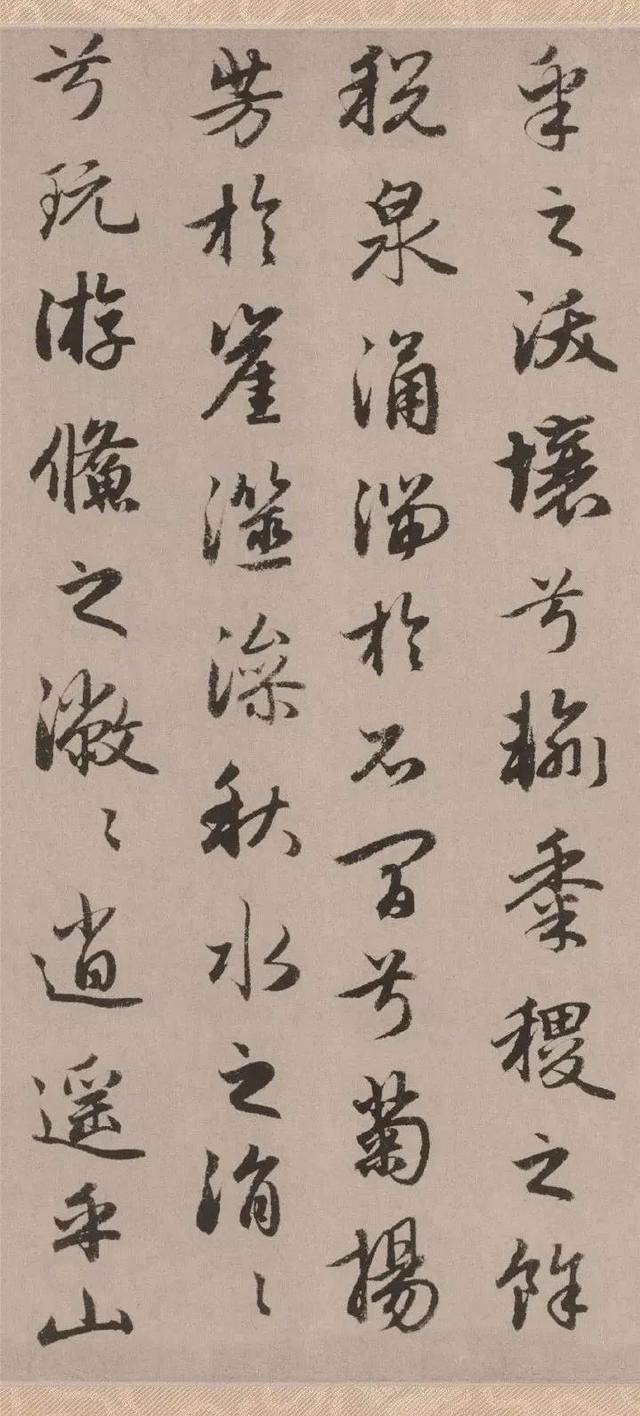 皋之沃壤兮輸黍稷之餘
稅泉涌湍於石間兮菊揚
芳於崖澨澡秋水之涓〻
兮玩游鯈之潎〻逍遥乎山